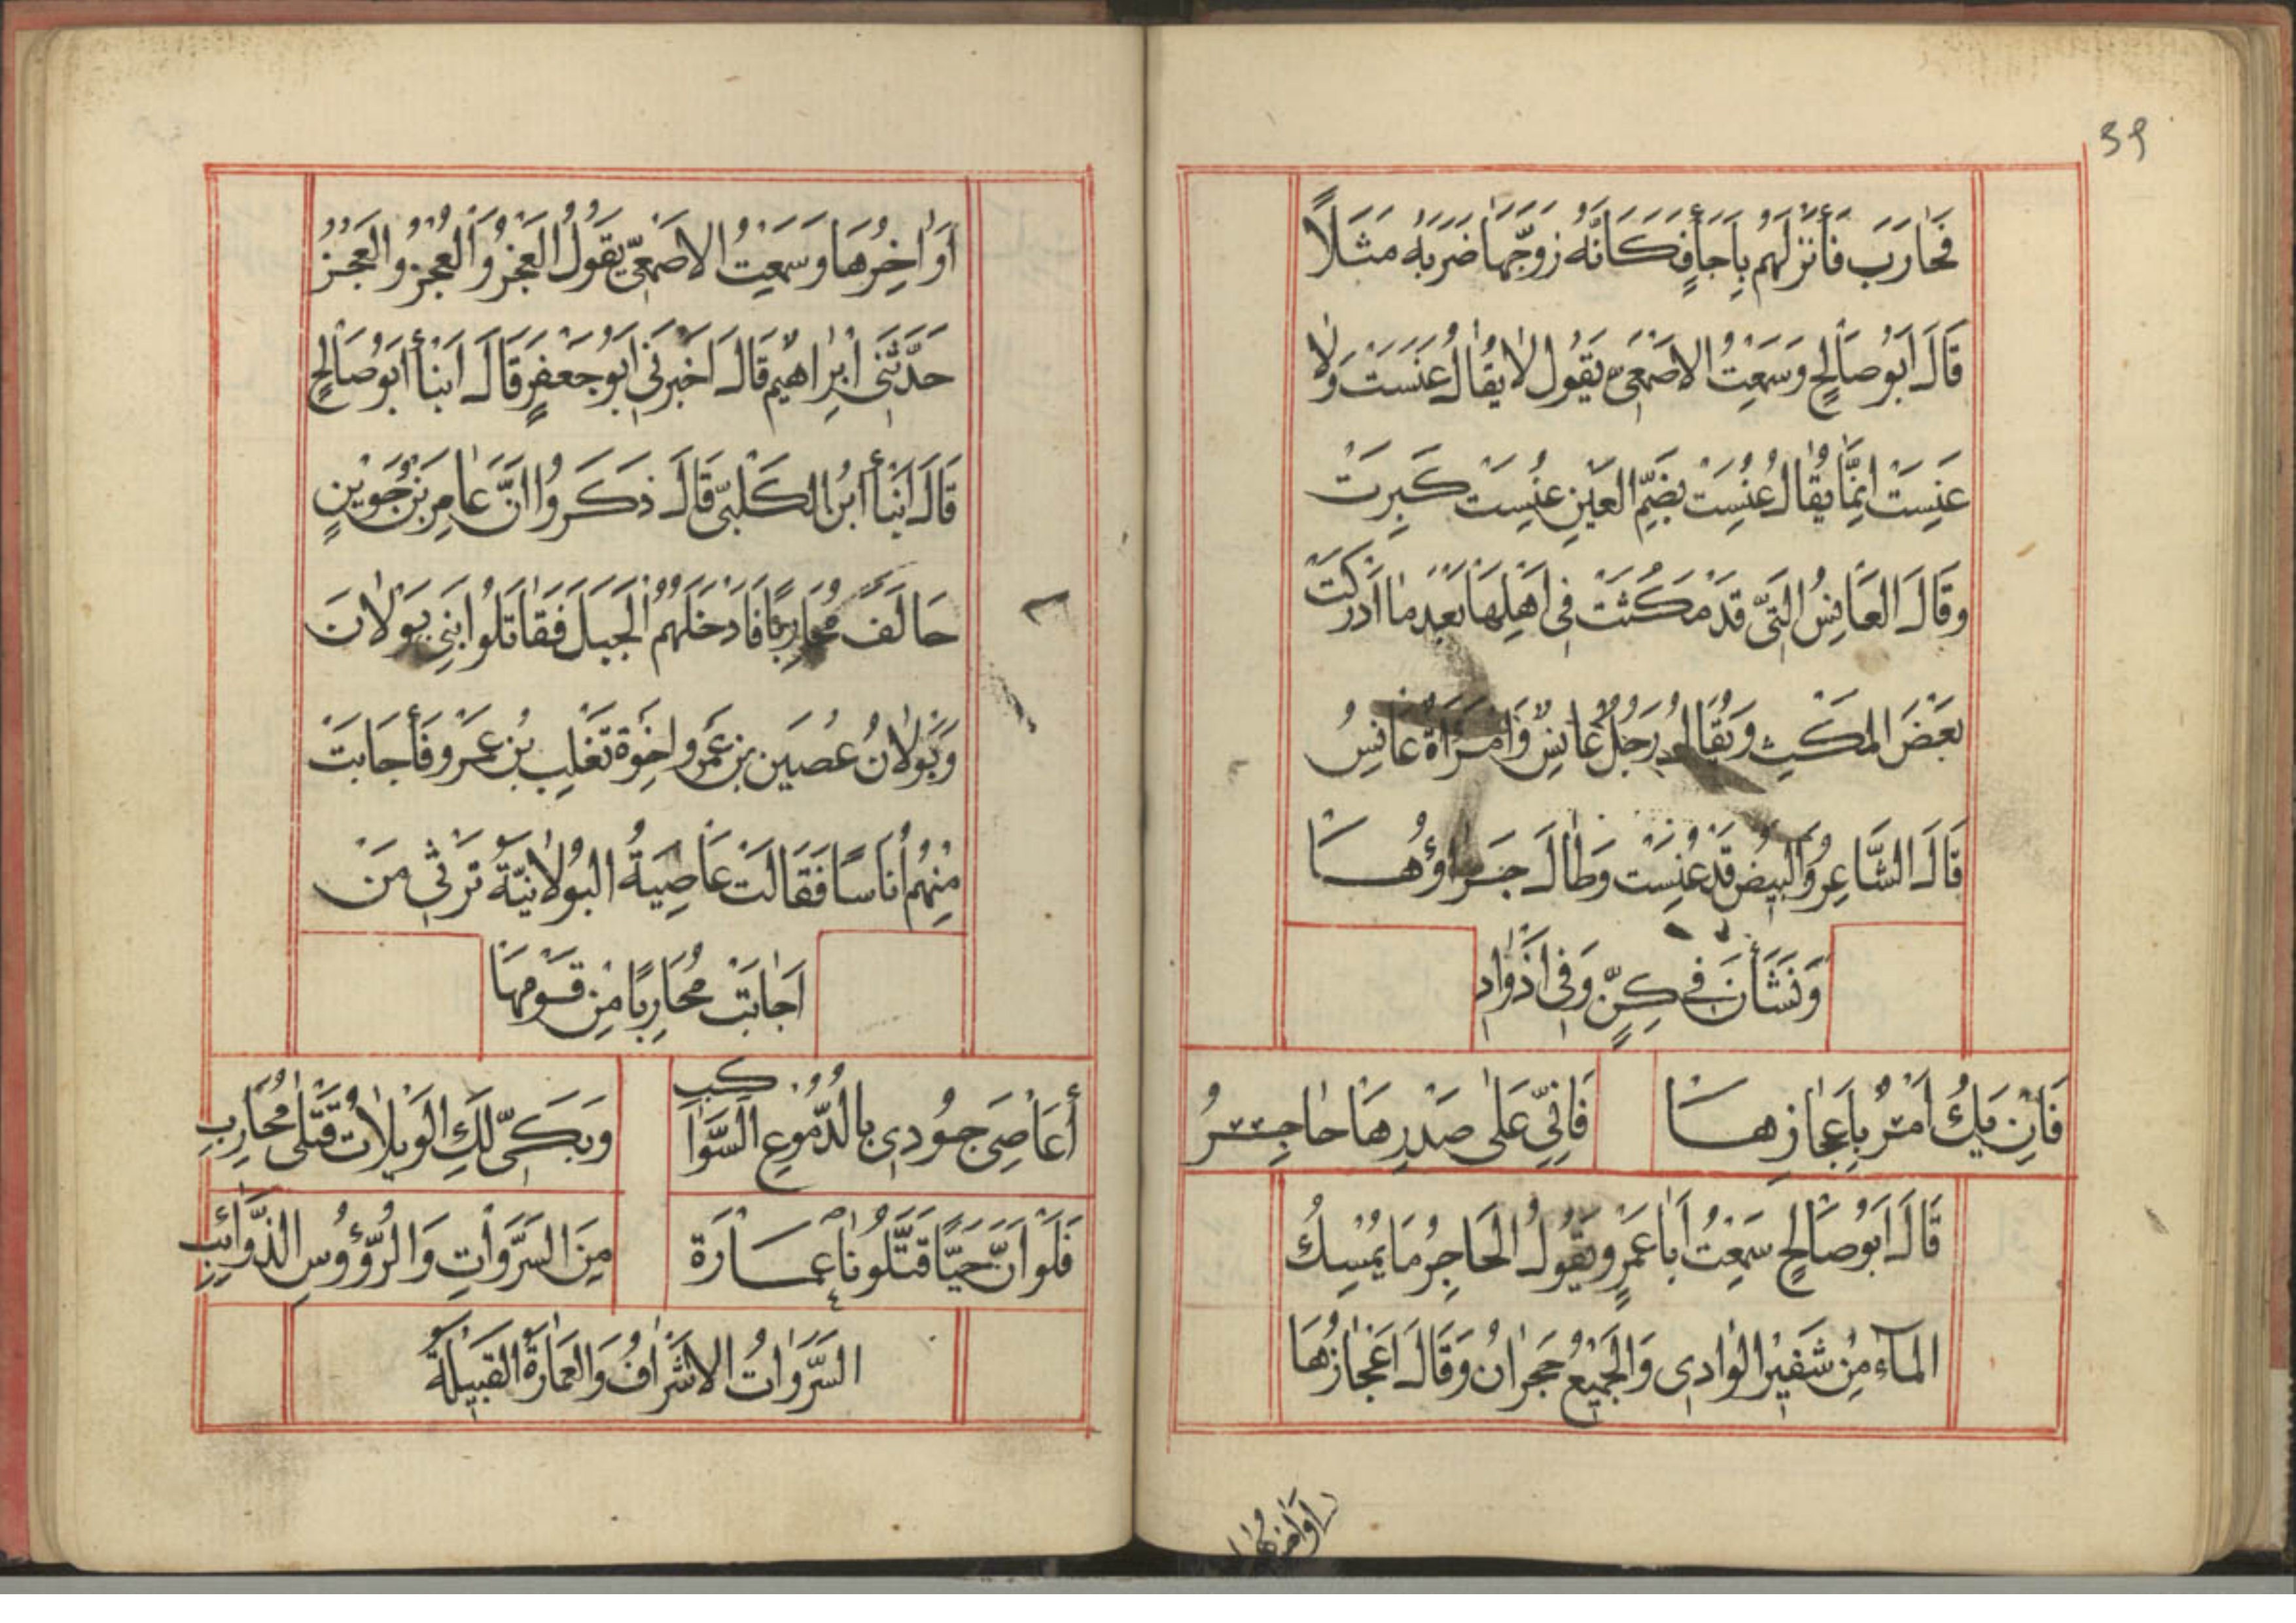 39
فَحَارَبَ فَأَنْزَلَهُم بِاَجَأٍ فَكَانَّهُ زَوَّجَهَا ضَرَبَهُ مَثَلًا
قَالَ اَبُوصَالِحٍ وَسَمِعْتُ الاَصْمَعِىَّ يَقُول لَا يُقَالُ عَنَسَتْ وَلَا
عَنِسَتْ اِنَّمَا يُقَالُ عُنِسَتْ بِضَمِّ العَيْنِ عُنِسَتْ كَبِرَتْ
وَقَالَ العَانِسُ الَّتِى قَدْ مَكُثَتْ فِى اَهْلِهَا بَعْدَ مَا اَدْرَكَتْ
بَعْضَ المَكْثِ وَيُقَالُ رَجُلٌ عَانِسٌ وَامْرَأَةٌ عَانِسُ
قَالَ الشَّاعِرُ وَالبِيضِ قَدْ عُنِسَتْ وَطَالَ جَرَاؤُهَا
وَنَشَأْنَ فِى كِنٍّ وَفِى اَذْوَادِ
فَاِنْ يَكُ اَمْرٌ بِاَعْجَازِهَا فَاِنِّى عَلَى صَدْرِهَا حَاجِرُ
قَالَ اَبُوصَالِحٍ سَمِعْتُ اَبَا عَمْرٍو يَقُولُ الحَاجِرُ مَا يُمْسِكُ
المَآءَ مِنْ شَفِيرِ الوَادِى وَالجَمِيْعُ حُجْرَانُ وَقَالَ اَعْجَازُهَا
اَوَاخِرُهَا
اَوَاخِرُهَا وَسَمِعْتُ الاَصْمَعِىَّ يَقُولُ العَجْزُ وَالعُجْزُ وَالعَجُزُ
حَدَّثَنِى اِبْرَاهِيمُ قَالَ اَخْبَرَنِى اَبُوجَعْفَرٍ قَالَ اَنْبَأَ اَبُوصَالِحٍ
قَالَ اَنْبَأَ ابْنُ الكَلْبِىِّ قَالَ ذَكَرُوا اَنَّ عَامِرَ بْنَ جُوَيْنٍ
حَالَفَ مُحَارِبًا فَاَدْخَلَهُمُ الْجَبَلَ فَقَاتَلُوا بَنِى بَوْلَانَ
وَبَوْلَانُ عُصَيْنَ بن عَمْرٍو اِخْوَة تَغْلِبَ بْنِ عَمْرٍو فَأَجَابَتْ
مِنْهُمْ أُنَاسًا فَقَالَتْ عَاصِيَةُ البَوْلَانِيَّةُ تَرْثِى مَنْ
اَجَابَتْ مُحَارِبًا مِنْ قَوْمِهَا
أَعَاصِىَ جُودِى بِالدُّمُوعِ السَّوَاكِبِ وَبَكِّى لَكِ الوَيْلَاتُ قَتْلَى مُحَارِبِ
فَلَوْ اَنَّ حَيًّا قَتَّلُونَا عِمَارَة مِنَ السَّرَوَاتِ وَالرُّؤُوسِ الذَّوَائِبِ
السَّرَوَاتُ الاَشْرَافُ وَالعِمَارَةُ القَبِيلَةُ